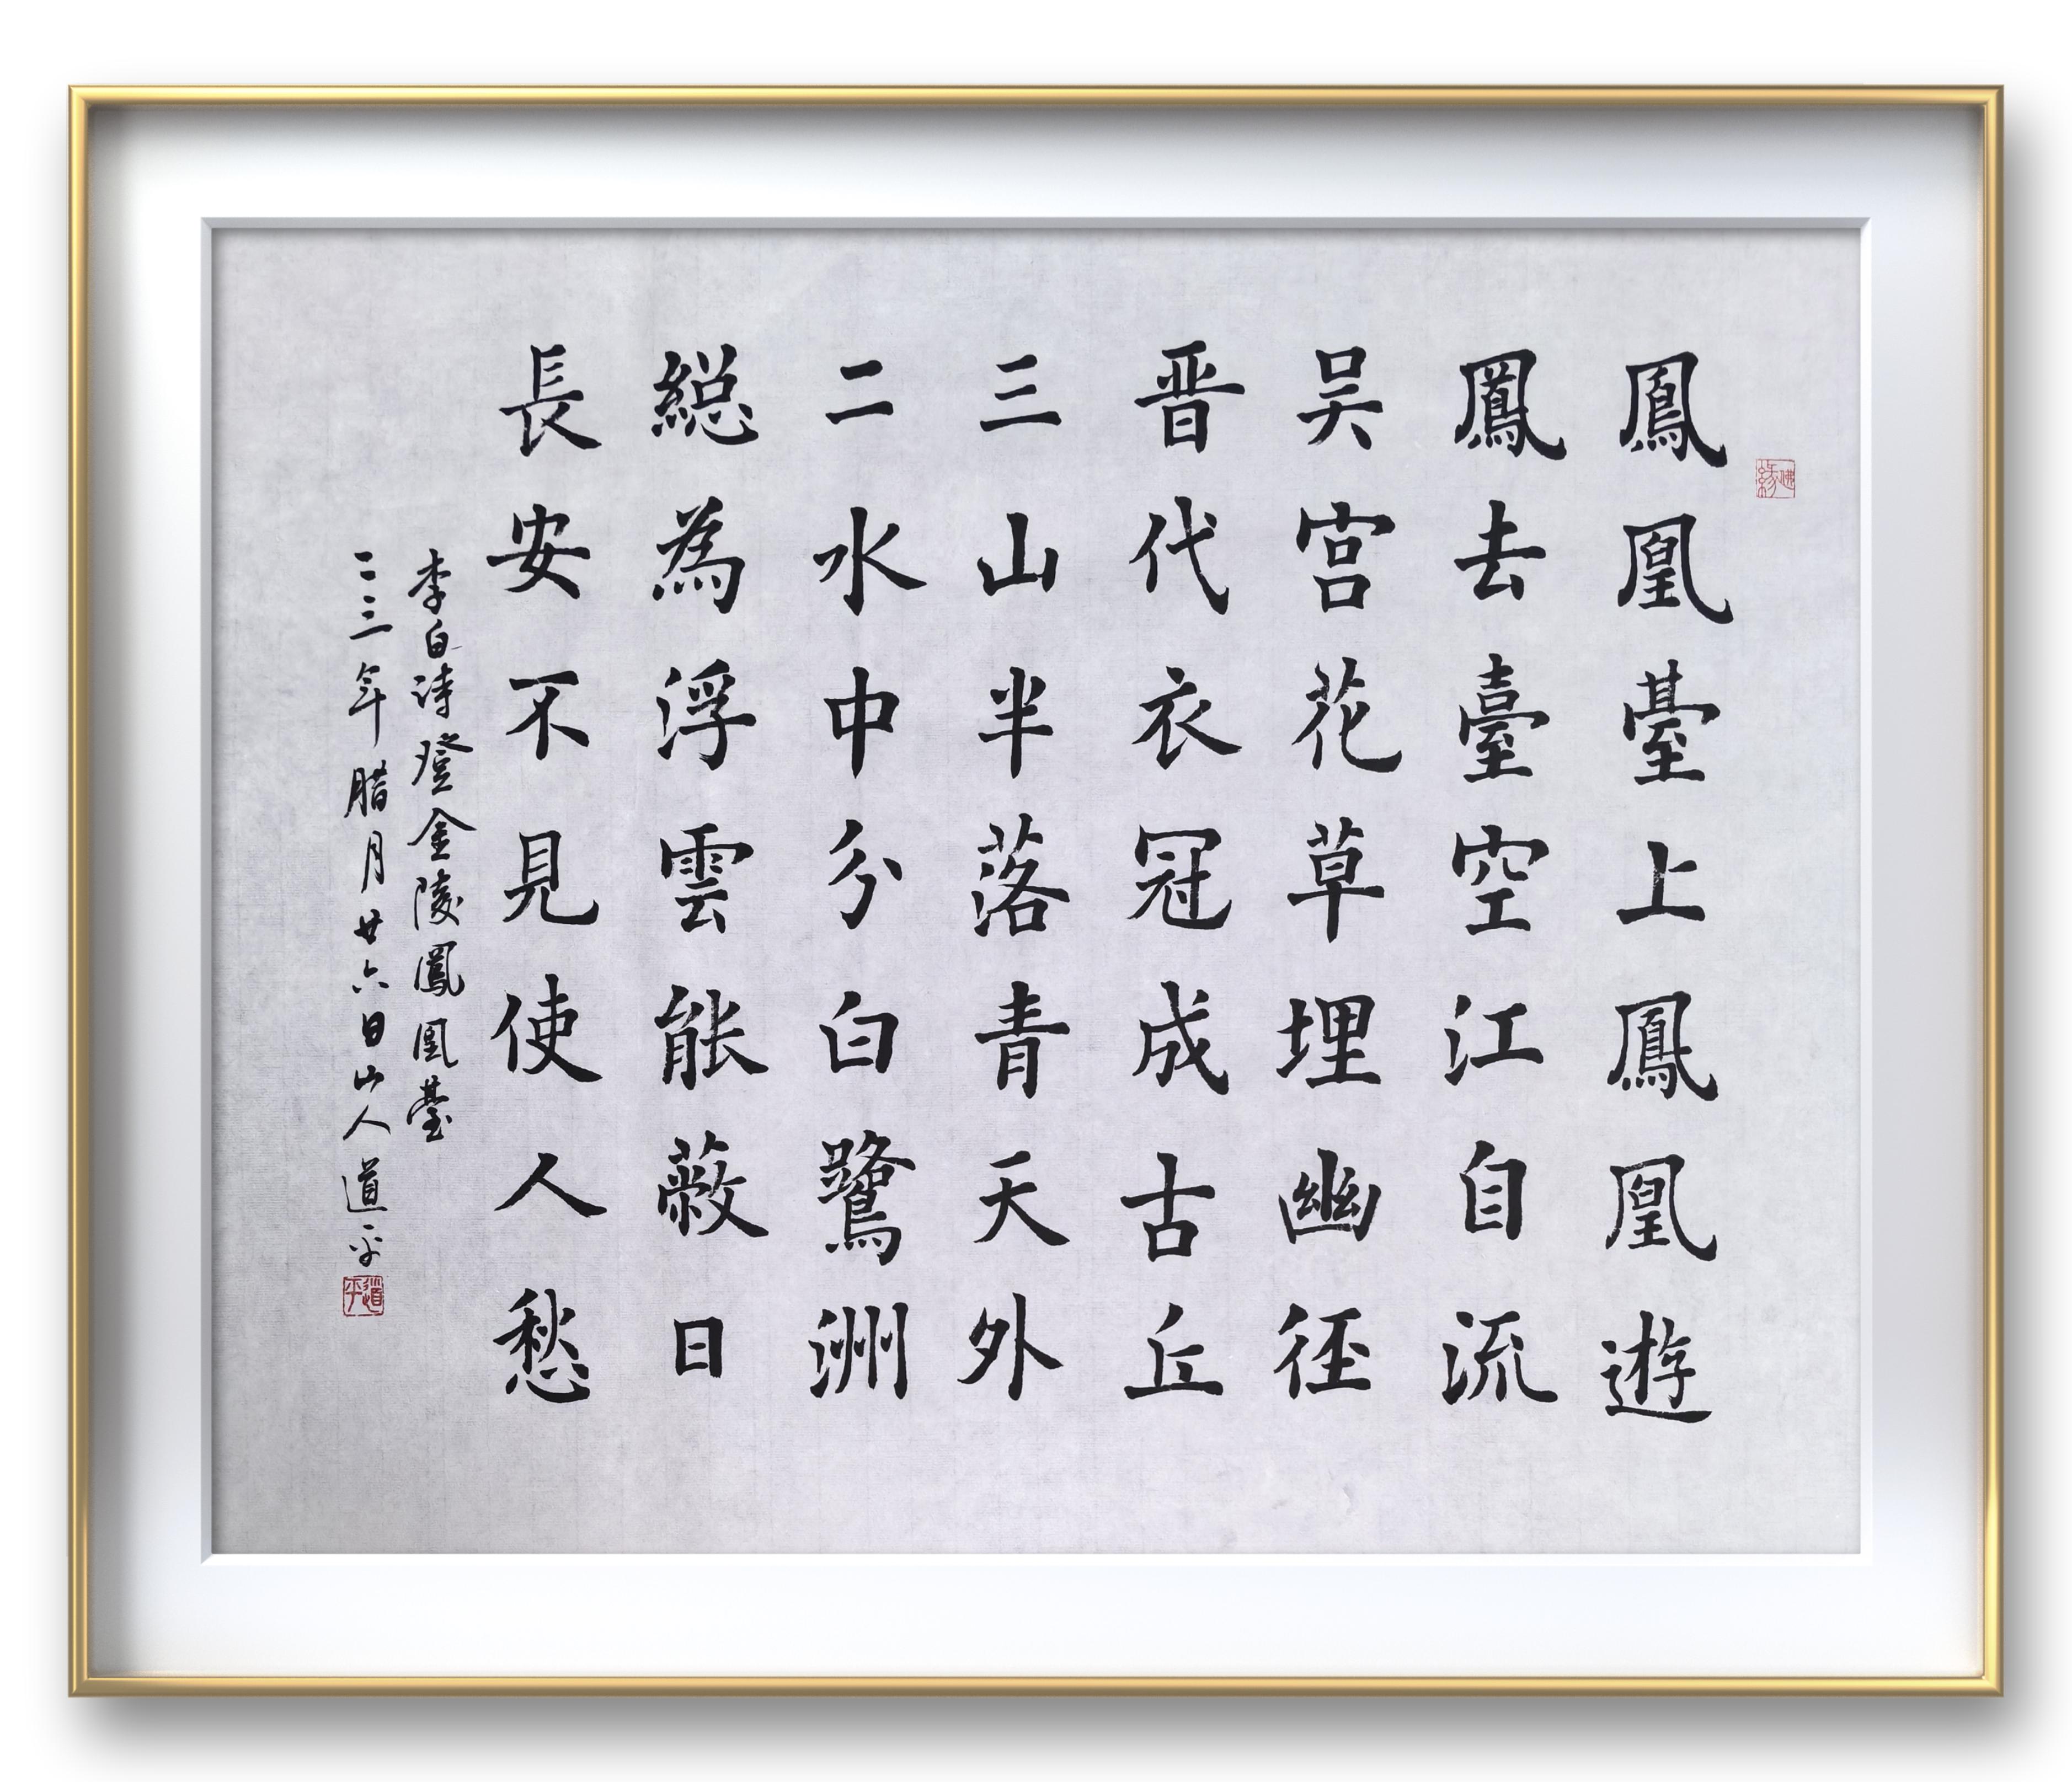 佛緣
鳳凰臺上鳳凰遊
鳳去臺空江自流
吴宫花草埋幽徑
晋代衣冠成古丘
三山半落青天外
二水中分白鷺洲
総為浮雲能蔽日
長安不見使人愁
李白诗登金陵鳳凰臺
二二三年腊月廿六日山人道平
道平